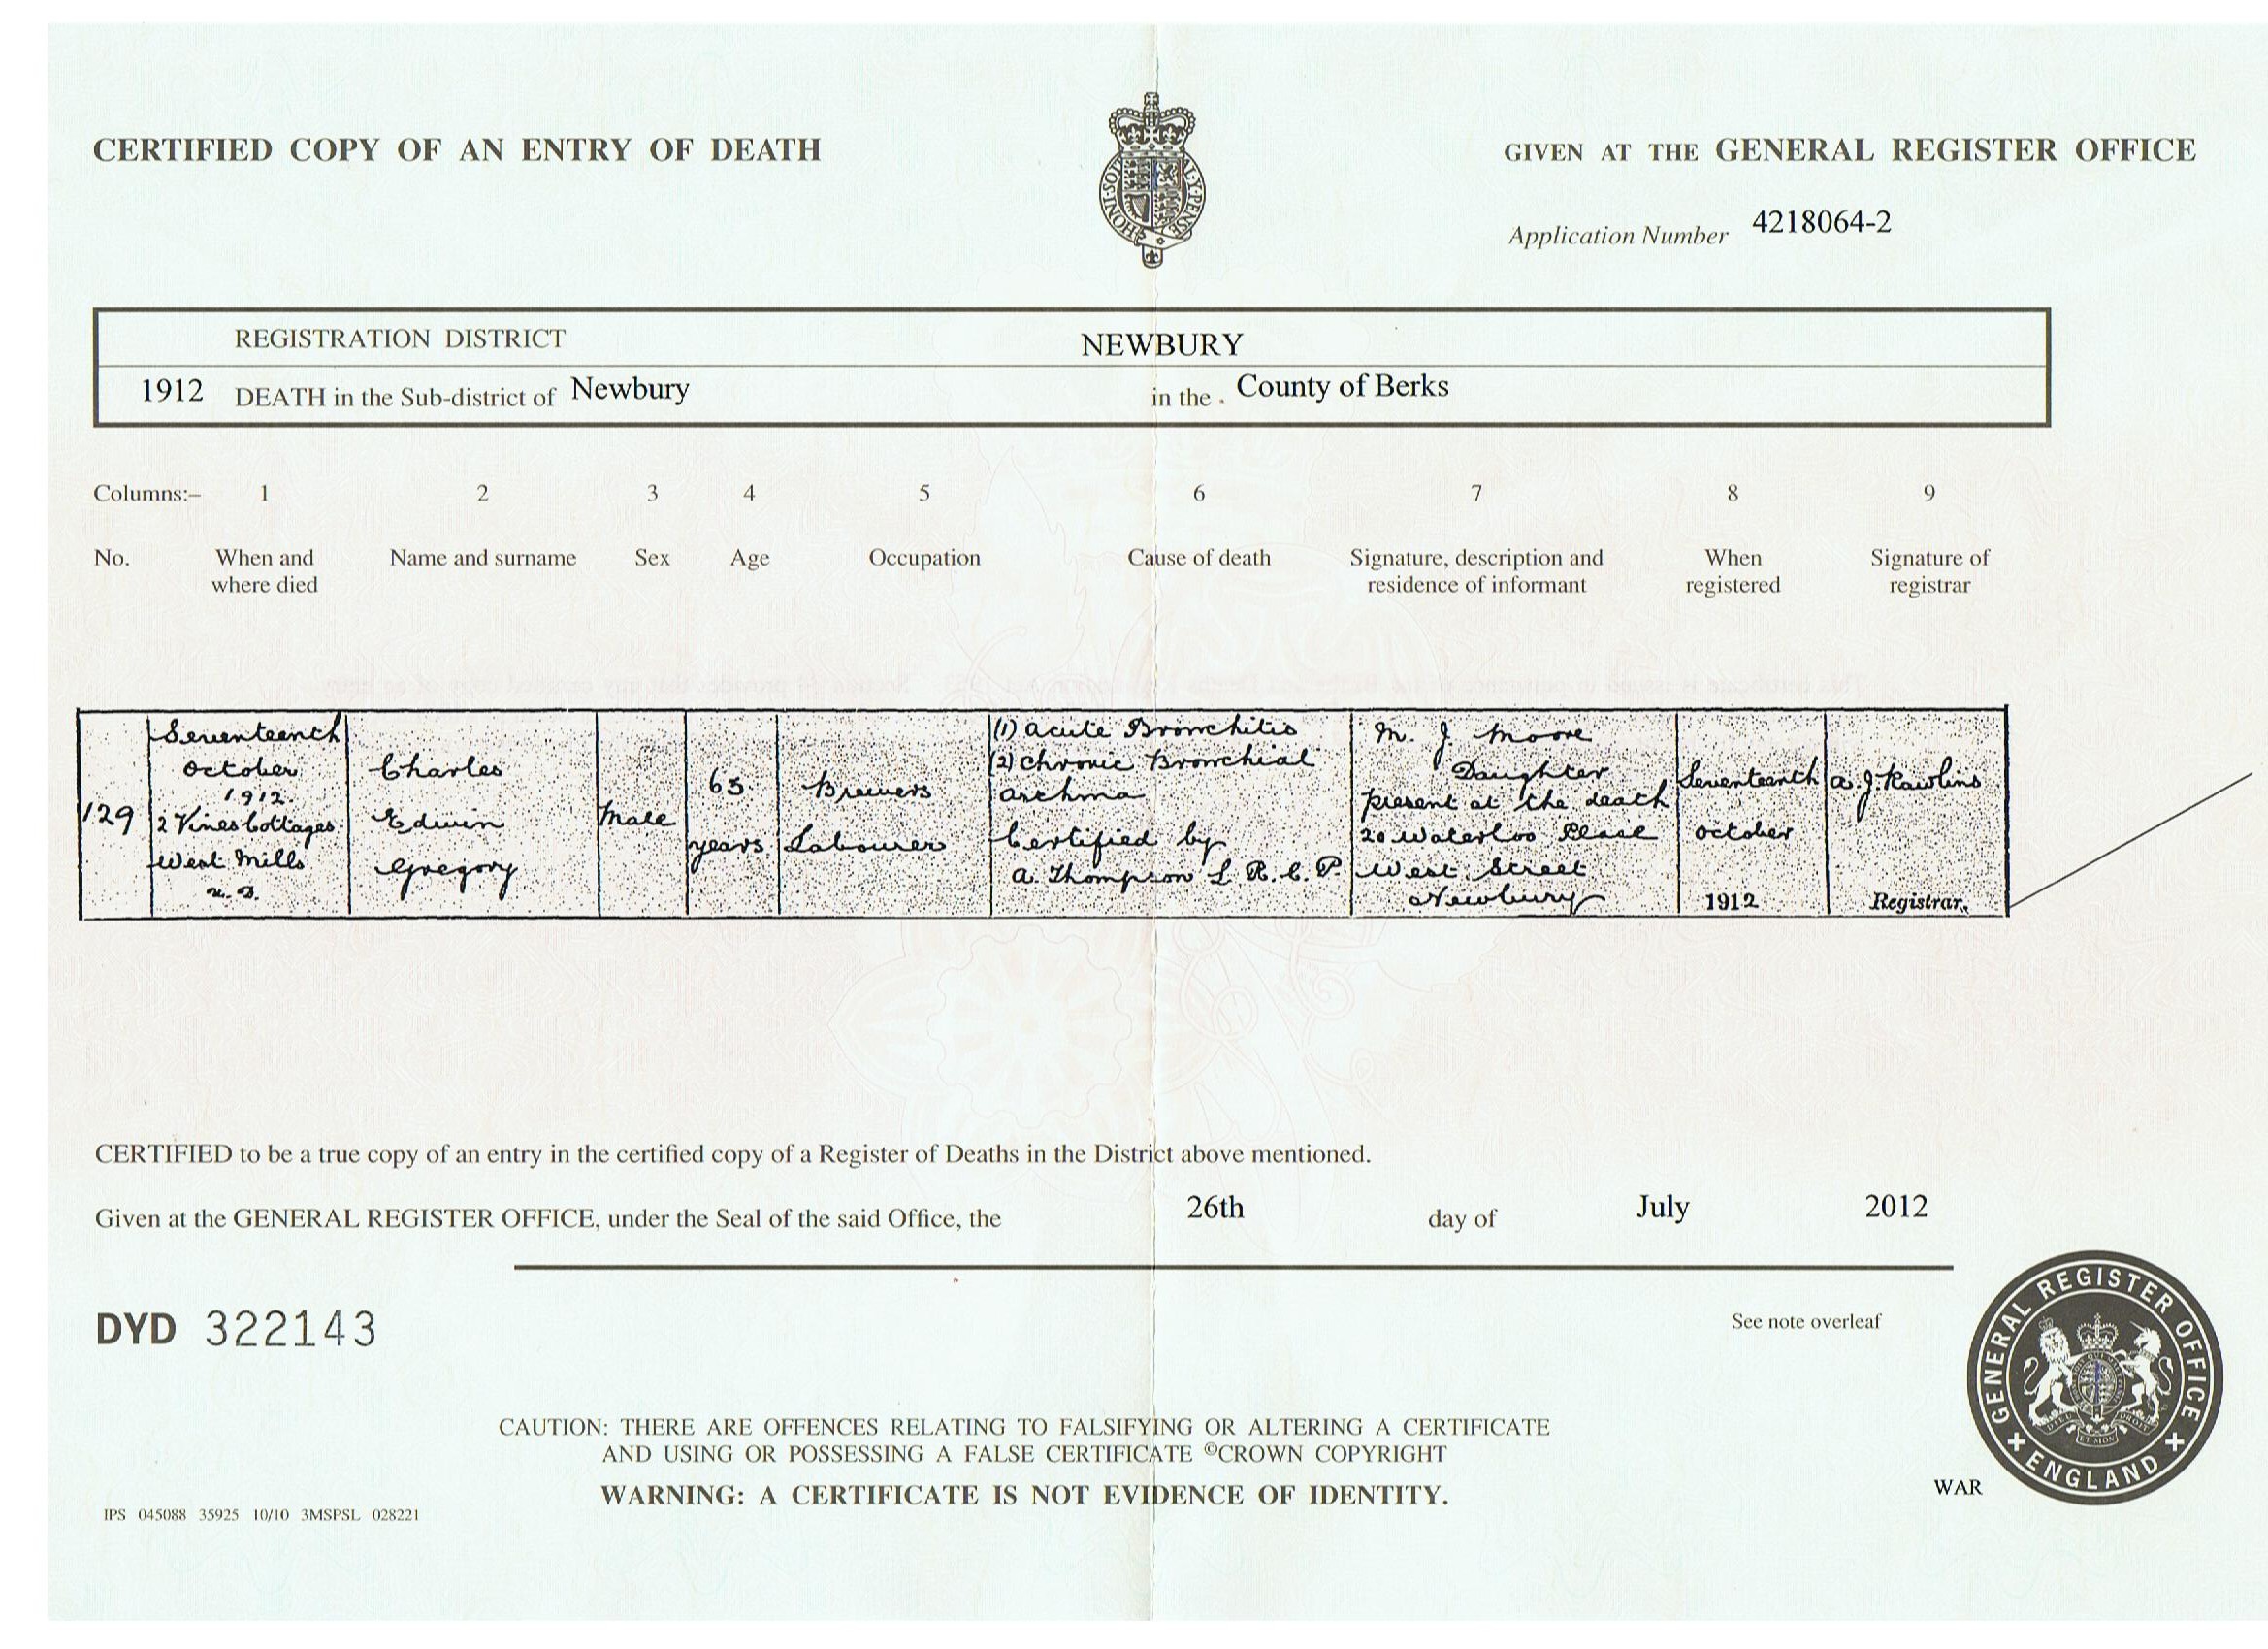 CERTIFIED COPY OF AN ENTRY OF DEATH
GIVEN AT THE GENERAL REGISTER OFFICE
HONI·SOI AL·Y·PENSE
Application Number 4218064-2
REGISTRATION DISTRICT NEWBURY
1912 DEATH in the Sub-district of Newbury in the County of Berks
Columns:– 1 2 3 4 5 6 7 8 9
No. When and where died Name and surname Sex Age Occupation Cause of death Signature, description and residence of informant When registered Signature of registrar
129
Seventeenth
October
1912
2 Vines Cottages
West Mills
U. D.
Charles
Edwin
Gregory
Male
63
years
Brewers
Labourer
(1) Acute Bronchitis
(2) Chronic Bronchial
Asthma
Certified by
A. Thompson L.R.C.P.
M. J. Moore
Daughter
present at the death
20 Waterloo Place
West Street
Newbury
Seventeenth
October
1912
A. J. Rawlins
Registrar.
CERTIFIED to be a true copy of an entry in the certified copy of a Register of Deaths in the District above mentioned.
Given at the GENERAL REGISTER OFFICE, under the Seal of the said Office, the 26th day of July 2012
DYD 322143
See note overleaf
GENERAL REGISTER OFFICE
ENGLAND
CAUTION: THERE ARE OFFENCES RELATING TO FALSIFYING OR ALTERING A CERTIFICATE
AND USING OR POSSESSING A FALSE CERTIFICATE ©CROWN COPYRIGHT
WARNING: A CERTIFICATE IS NOT EVIDENCE OF IDENTITY.
WAR
IPS 045088 35925 10/10 3MSPSL 028221